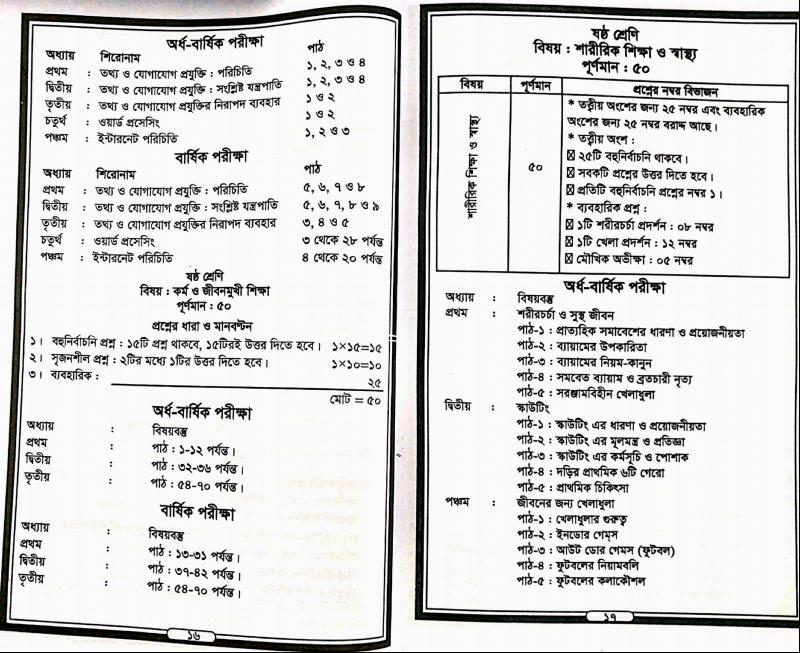 অর্ধ-বার্ষিক পরীক্ষা
অধ্যায় শিরোনাম পাঠ
প্রথম : তথ্য ও যোগাযোগ প্রযুক্তি : পরিচিতি ১, ২, ৩ ও ৪
দ্বিতীয় : তথ্য ও যোগাযোগ প্রযুক্তি : সংশ্লিষ্ট যন্ত্রপাতি ১, ২, ৩ ও ৪
তৃতীয় : তথ্য ও যোগাযোগ প্রযুক্তির নিরাপদ ব্যবহার ১ ও ২
চতুর্থ : ওয়ার্ড প্রসেসিং ১ ও ২
পঞ্চম : ইন্টারনেট পরিচিতি ১, ২ ও ৩
বার্ষিক পরীক্ষা
অধ্যায় শিরোনাম পাঠ
প্রথম : তথ্য ও যোগাযোগ প্রযুক্তি : পরিচিতি ৫, ৬, ৭ ও ৮
দ্বিতীয় : তথ্য ও যোগাযোগ প্রযুক্তি : সংশ্লিষ্ট যন্ত্রপাতি ৫, ৬, ৭, ৮ ও ৯
তৃতীয় : তথ্য ও যোগাযোগ প্রযুক্তির নিরাপদ ব্যবহার ৩, ৪ ও ৫
চতুর্থ : ওয়ার্ড প্রসেসিং ৩ থেকে ২৮ পর্যন্ত
পঞ্চম : ইন্টারনেট পরিচিতি ৪ থেকে ২০ পর্যন্ত
ষষ্ঠ শ্রেণি
বিষয় : কর্ম ও জীবনমুখী শিক্ষা
পূর্ণমান : ৫০
প্রশ্নের ধারা ও মানবন্টন
১। বহুনির্বাচনি প্রশ্ন : ১৫টি প্রশ্ন থাকবে, ১৫টিরই উত্তর দিতে হবে। ১×১৫=১৫
২। সৃজনশীল প্রশ্ন : ২টির মধ্যে ১টির উত্তর দিতে হবে। ১×১০=১০
৩। ব্যবহারিক : ২৫
মোট = ৫০
অর্ধ-বার্ষিক পরীক্ষা
অধ্যায় : বিষয়বস্তু
প্রথম : পাঠ : ১-১২ পর্যন্ত।
দ্বিতীয় : পাঠ : ৩২-৩৬ পর্যন্ত।
তৃতীয় : পাঠ : ৫৪-৭০ পর্যন্ত।
বার্ষিক পরীক্ষা
অধ্যায় : বিষয়বস্তু
প্রথম : পাঠ : ১৩-৩১ পর্যন্ত।
দ্বিতীয় : পাঠ : ৩৭-৪২ পর্যন্ত।
তৃতীয় : পাঠ : ৫৪-৭০ পর্যন্ত।
১৬
ষষ্ঠ শ্রেণি
বিষয় : শারীরিক শিক্ষা ও স্বাস্থ্য
পূর্ণমান : ৫০
বিষয় পূর্ণমান প্রশ্নের নম্বর বিভাজন
শারীরিক শিক্ষা ও স্বাস্থ্য
৫০
* তত্বীয় অংশের জন্য ২৫ নম্বর এবং ব্যবহারিক
অংশের জন্য ২৫ নম্বর বরাদ্দ আছে।
* তত্বীয় অংশ :
২৫টি বহুনির্বাচনি থাকবে।
সবকটি প্রশ্নের উত্তর দিতে হবে।
প্রতিটি বহুনির্বাচনি প্রশ্নের নম্বর ১।
* ব্যবহারিক প্রশ্ন :
১টি শরীরচর্চা প্রদর্শন : ০৮ নম্বর
১টি খেলা প্রদর্শন : ১২ নম্বর
মৌখিক অভীক্ষা : ০৫ নম্বর
অর্ধ-বার্ষিক পরীক্ষা
অধ্যায় : বিষয়বস্তু
প্রথম : শরীরচর্চা ও সুস্থ জীবন
পাঠ-১ : প্রাত্যহিক সমাবেশের ধারণা ও প্রয়োজনীয়তা
পাঠ-২ : ব্যায়ামের উপকারিতা
পাঠ-৩ : ব্যায়ামের নিয়ম-কানুন
পাঠ-৪ : সমবেত ব্যায়াম ও ব্রতচারী নৃত্য
পাঠ-৫ : সরঞ্জামবিহীন খেলাধুলা
দ্বিতীয় : স্কাউটিং
পাঠ-১ : স্কাউটিং এর ধারণা ও প্রয়োজনীয়তা
পাঠ-২ : স্কাউটিং এর মূলমন্ত্র ও প্রতিজ্ঞা
পাঠ-৩ : স্কাউটিং এর কর্মসূচি ও পোশাক
পাঠ-৪ : দড়ির প্রাথমিক ৬টি গেরো
পাঠ-৫ : প্রাথমিক চিকিৎসা
পঞ্চম : জীবনের জন্য খেলাধুলা
পাঠ-১ : খেলাধুলার গুরুত্ব
পাঠ-২ : ইনডোর গেম্‌স
পাঠ-৩ : আউট ডোর গেমস (ফুটবল)
পাঠ-৪ : ফুটবলের নিয়ামবলি
পাঠ-৫ : ফুটবলের কলাকৌশল
১৭